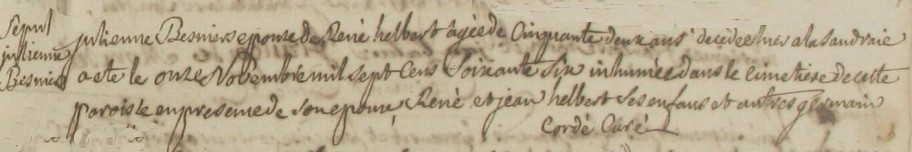 Sepul
julienne
Besnier
julienne Besniers epouse de René helbert agèe de Cinquante deux ans decedee hier a la Sandraie
a ete le onze Novembre mil sept Cens Soixante Six inhumèe dans le cimetière de cette
paroisse en presence de son epoux, René et jean helbert Ses enfans et autres germain
Cordé Curé